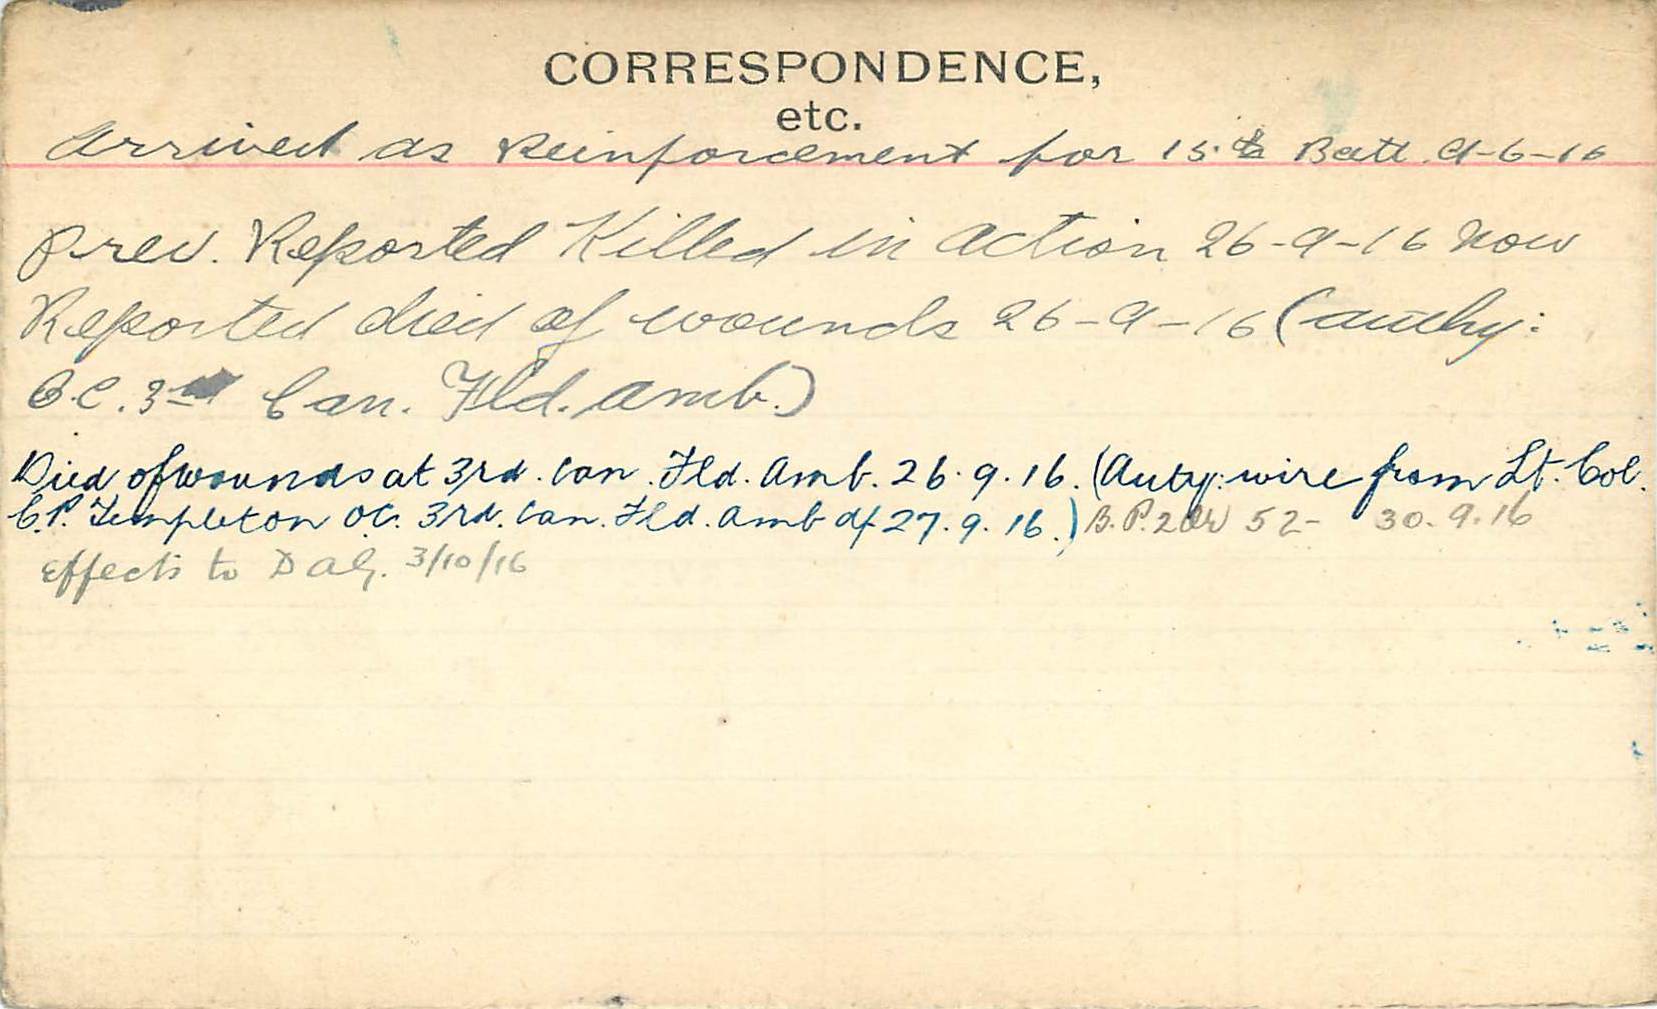 CORRESPONDENCE,
etc.
Arrived as Reinforcement for 15th Batt. 9-6-16
Prev. Reported Killed in Action 26-9-16 Now
Reported died of wounds 26-9-16 (authy:
O.C. 3rd Can. Fld. Amb.)
Died of wounds at 3rd. Can. Fld. Amb. 26.9.16. (Auty: wire from Lt. Col.
C.P. Templeton OC. 3rd. Can. Fld. Amb df 27.9.16.) B.P. 52- 30.9.16
Effects to DAG. 3/10/16